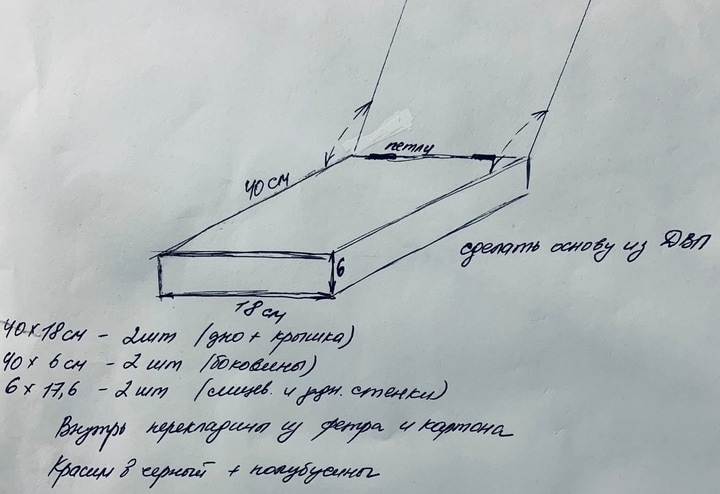 петли
40 см
6
сделать основу из ДВП
18 см
40 x 18 см - 2 шт (дно + крышка)
40 x 6 см - 2 шт (боковины)
6 x 17,6 - 2 шт (лицев. и задн. стенки)
Внутрь перекладины из фетра и картона
Красим в черный + полубусины